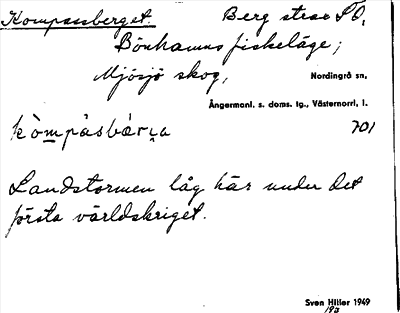 Kompassberget. Berg strax SO.
Bönhamns fiskeläge;
Mjösjö skog, Nordingrå sn,
Ångermanl. s. doms. tg., Västernorrl. l.
701
Landstormen låg här under det
första världskriget.
Sven Hiller 1949